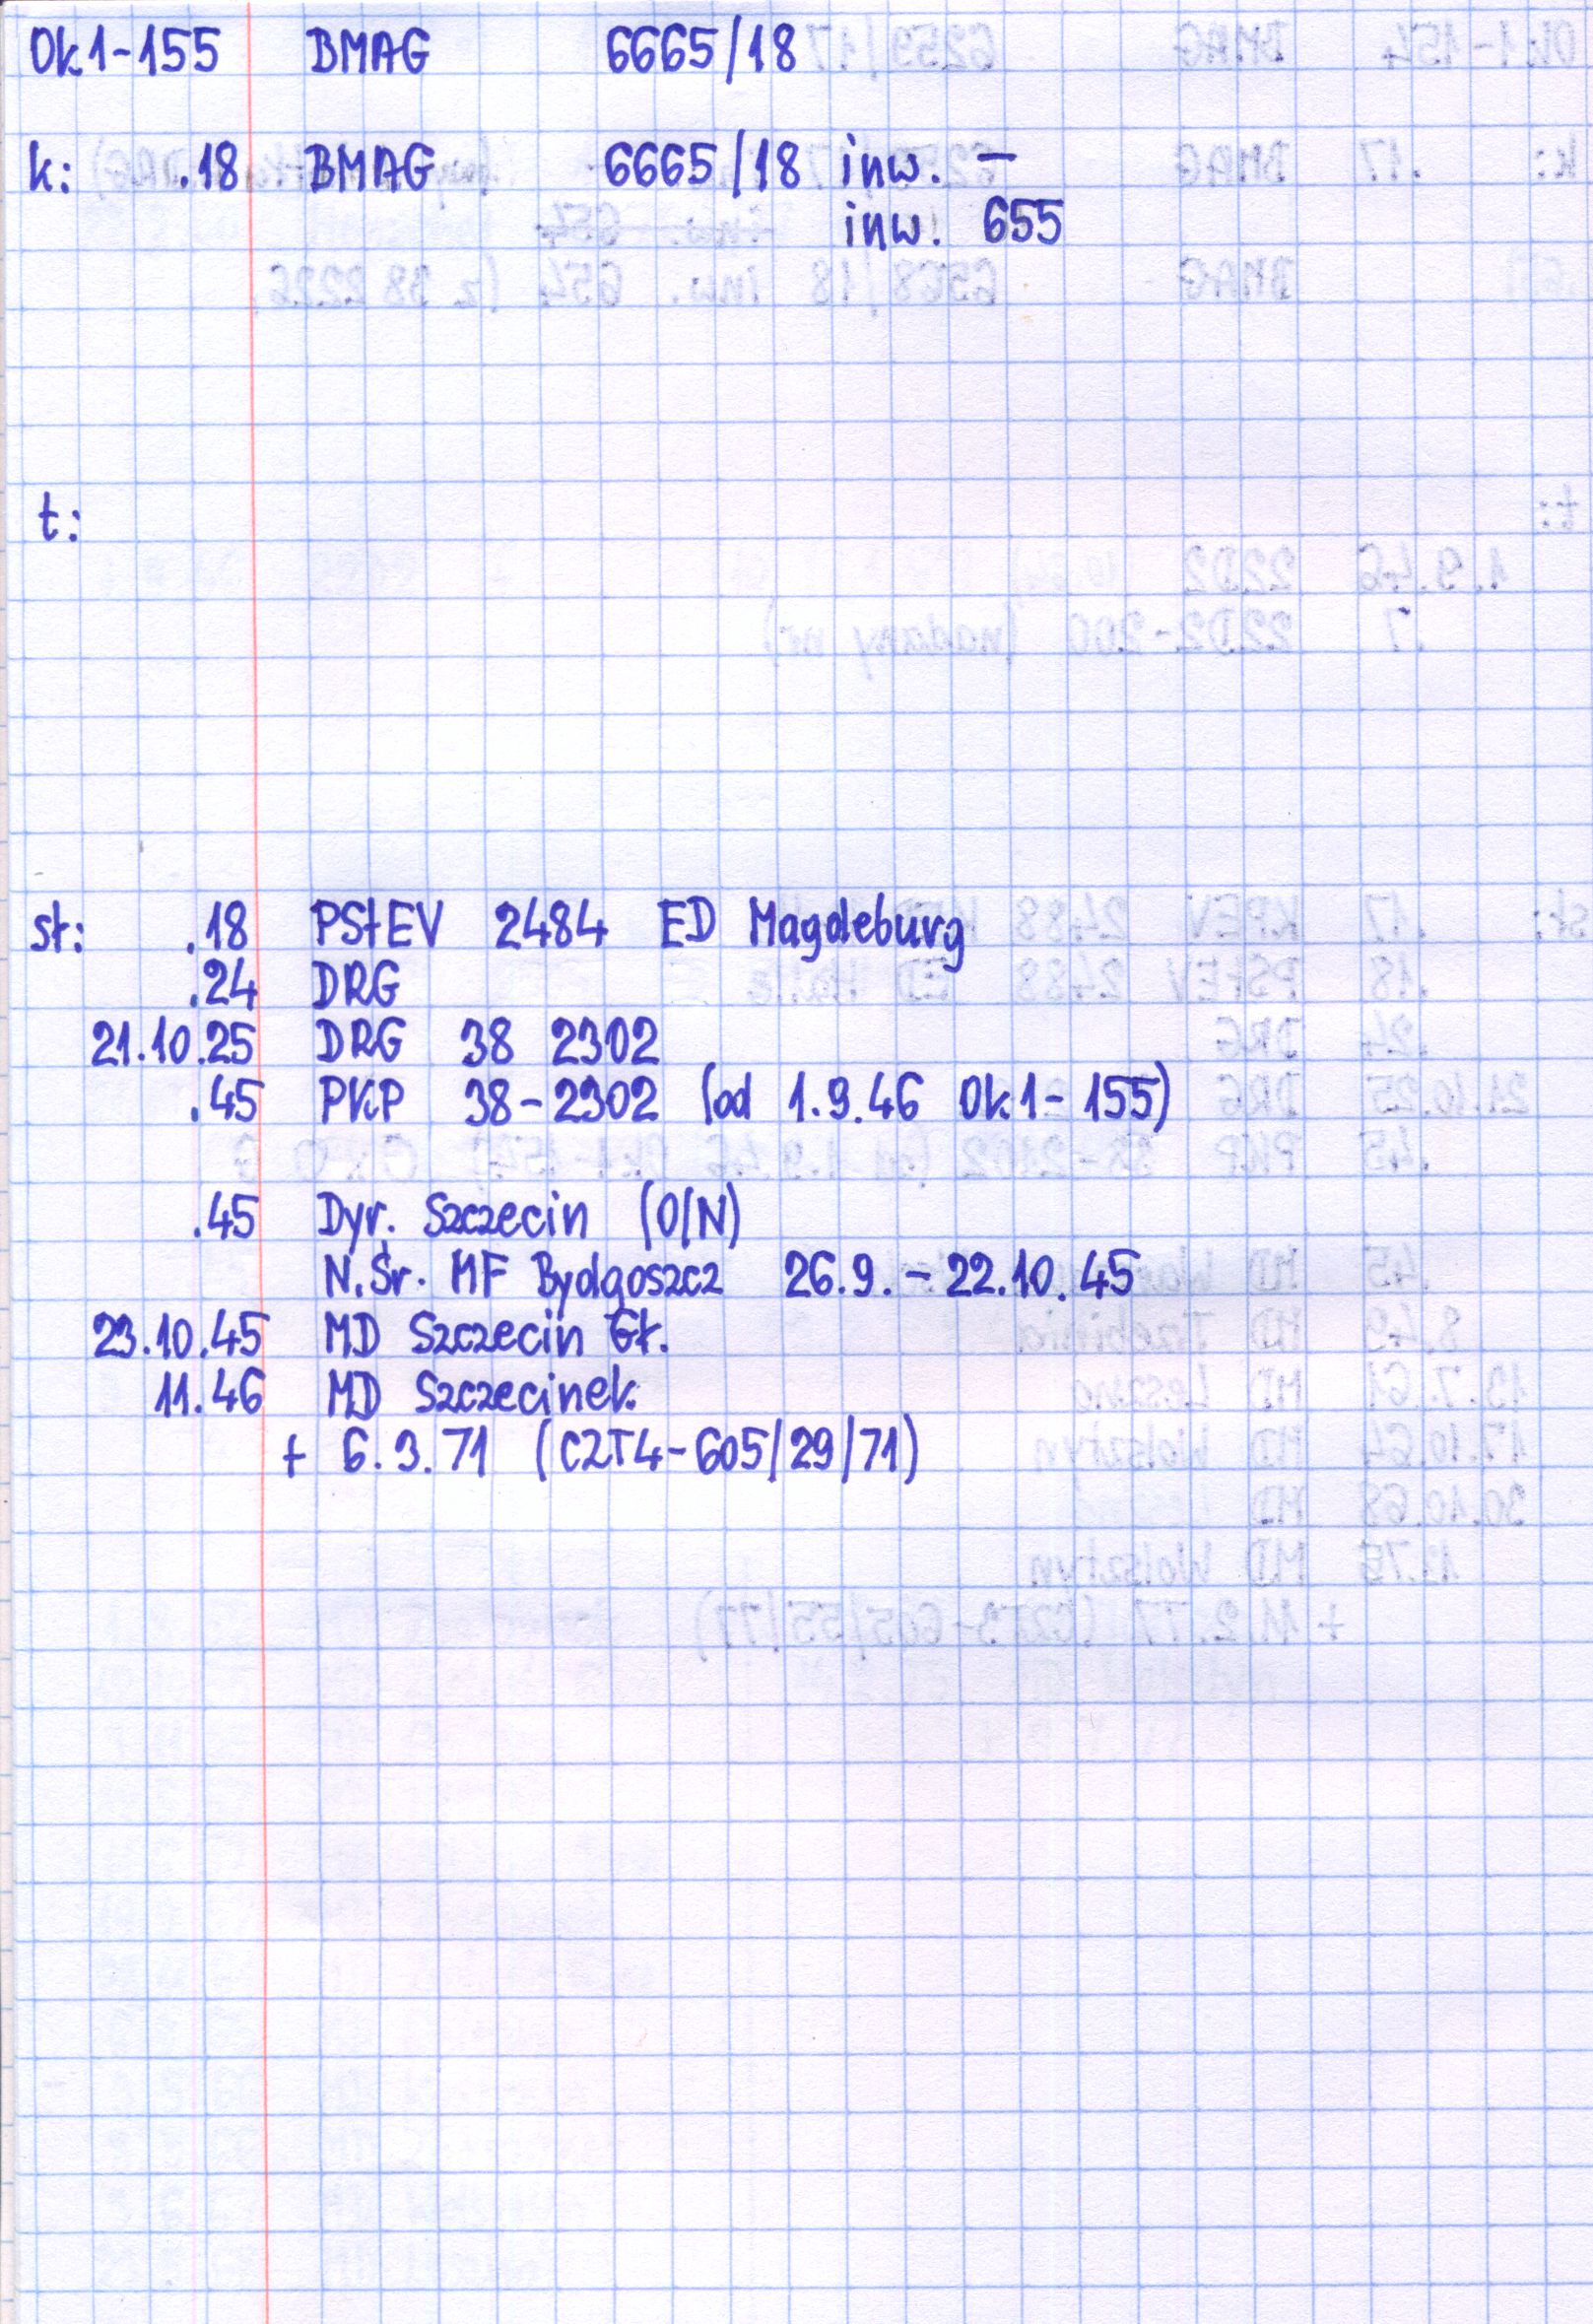 Ok1-155 BMAG 6665/18
k: .18 BMAG 6665/18 inw. —
inw. 655
t:
st: .18 PStEV 2484 ED Magdeburg
.24 DRG
21.10.25 DRG 38 2302
.45 PKP 38-2302 (od 1.9.46 Ok1-155)
.45 Dyr. Szczecin (O/N)
N.Śr. MF Bydgoszcz 26.9.-22.10.45
23.10.45 MD Szczecin Gł.
11.46 MD Szczecinek
+ 6.3.71 (CZT4-605/29/71)